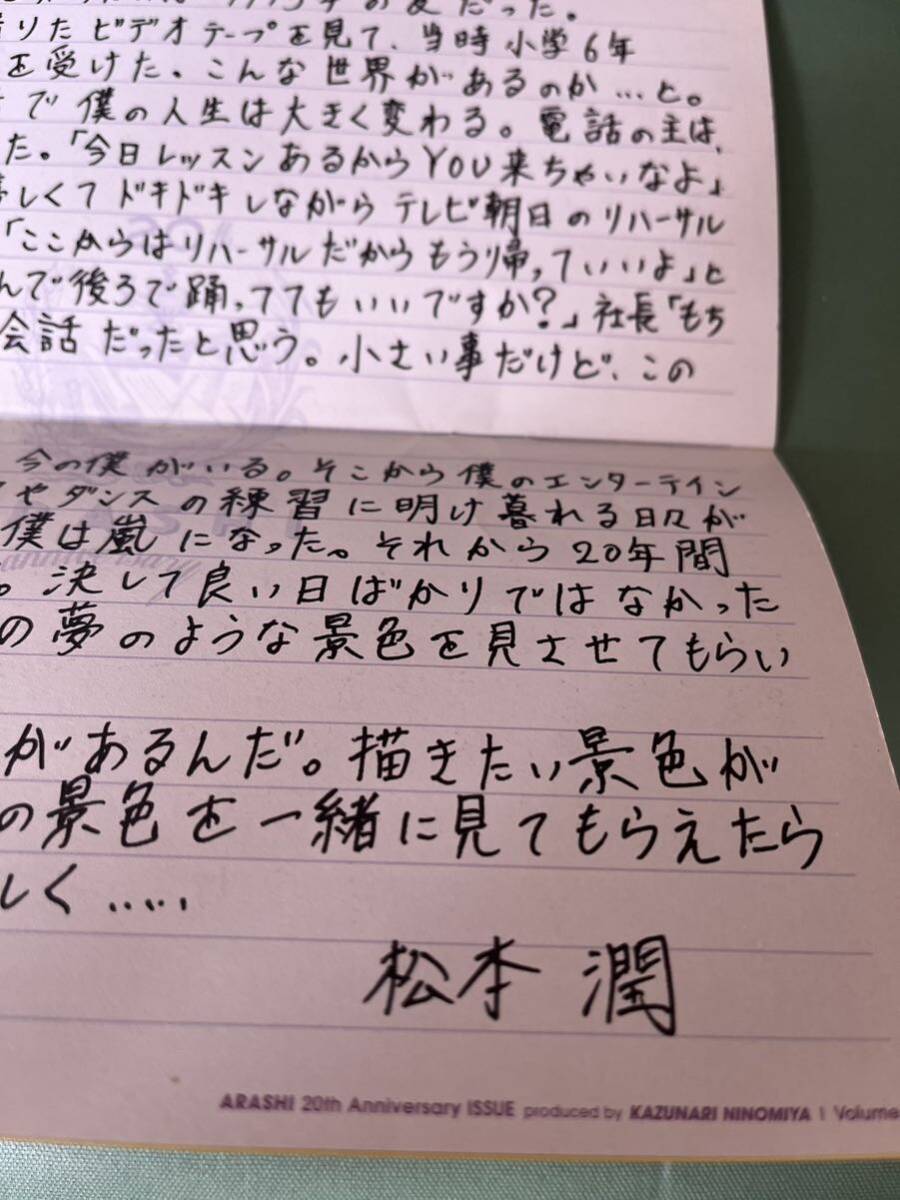 りたビデオテープを見て、当時小学6年
を受けた。こんな世界があるのか…と。
で僕の人生は大きく変わる。電話の主は、
た。「今日レッスンあるからYOU来ちゃいなよ」
しくてドキドキしながらテレビ朝日のリハーサル
「ここからはリハーサルだからもう帰っていいよ」と
んで後ろで踊っててもいいですか?」社長「もち
会話だったと思う。小さい事だけど、この
今の僕がいる。そこから僕のエンターテイン
やダンスの練習に明け暮れる日々が
僕は嵐になった。それから20年間
。決して良い日ばかりではなかった
の夢のような景色を見させてもらい
があるんだ。描きたい景色が
の景色を一緒に見てもらえたら
しく……
松本 潤
ARASHI 20th Anniversary ISSUE produced by KAZUNARI NINOMIYA | Volume